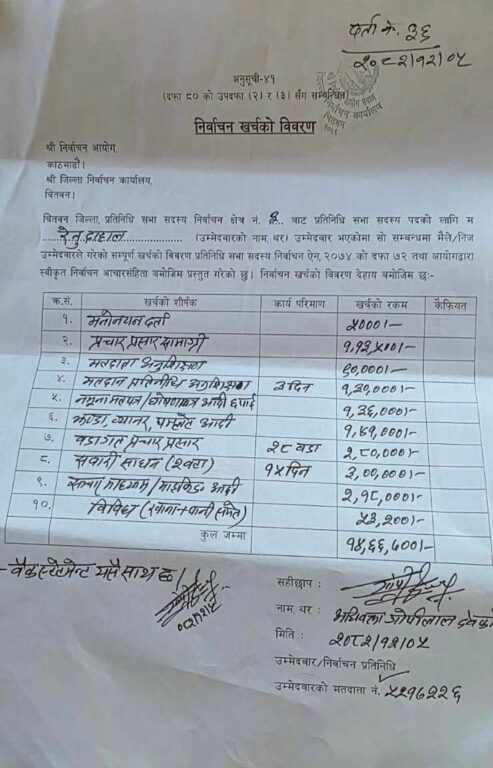 दर्ता नं. ३६
२०८२/१२/०५
अनुसूची-४१
(दफा ८० को उपदफा (२) र (३) सँग सम्बन्धित)
निर्वाचन खर्चको विवरण
श्री निर्वाचन आयोग,
काठमाडौं।
श्री जिल्ला निर्वाचन कार्यालय,
चितवन।
चितवन जिल्ला, प्रतिनिधि सभा सदस्य निर्वाचन क्षेत्र नं. बाट प्रतिनिधि सभा सदस्य पदको लागि म
रेनु दाहाल (उम्मेदवारको नाम, थर) उम्मेदवार भएकोमा सो सम्बन्धमा मैले/निज
उम्मेदवारले गरेको सम्पूर्ण खर्चको विवरण प्रतिनिधि सभा सदस्य निर्वाचन ऐन, २०७४ को दफा ७२ तथा आयोगद्वारा
स्वीकृत निर्वाचन आचारसंहिता बमोजिम प्रस्तुत गरेको छु। निर्वाचन खर्चको विवरण देहाय बमोजिम छः-
क्र.सं. खर्चको शीर्षक कार्य परिमाण खर्चको रकम कैफियत
१. मनोनयन दर्ता ५०००।-
२. प्रचार प्रसार सामाग्री १,१३,५००।-
३. मतदाता अनुशिक्षण ९०,०००।-
४. मतदान प्रतिनिधि अनुशिक्षण ३ दिन १,३०,०००।-
५. नमूना मतपत्र/घोषणापत्र आदी छपाई १,३६,०००।-
६. झण्डा, ब्यानर, पम्प्लेट आदी १,४१,०००।-
७. वडागत प्रचार प्रसार २८ वडा २,८०,०००।-
८. सवारी साधन (२वटा) १५ दिन ३,००,०००।-
९. सञ्चार माध्यम/माइकिङ आदी २,१८,०००।-
१०. विविध (खाना+पानी समेत) ५३,२००।-
कुल जम्मा १४,६६,७००।-
- बैंक स्टेटमेन्ट यसै साथ छ।
०८२/१२/०५
सहीछाप :
नाम थर : गोपीलाल
मिति : २०८२/१२/०५
उम्मेदवार/निर्वाचन प्रतिनिधि
उम्मेदवारको मतदाता नं. ५२१६२२६